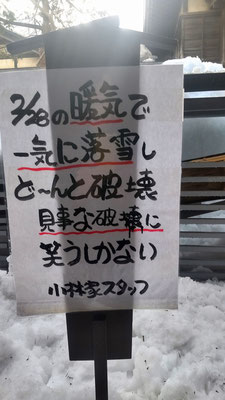 2/28の暖気で
一気に落雪し
ど〜んと破壊
見事な破壊に
笑うしかない
小林家スタッフ